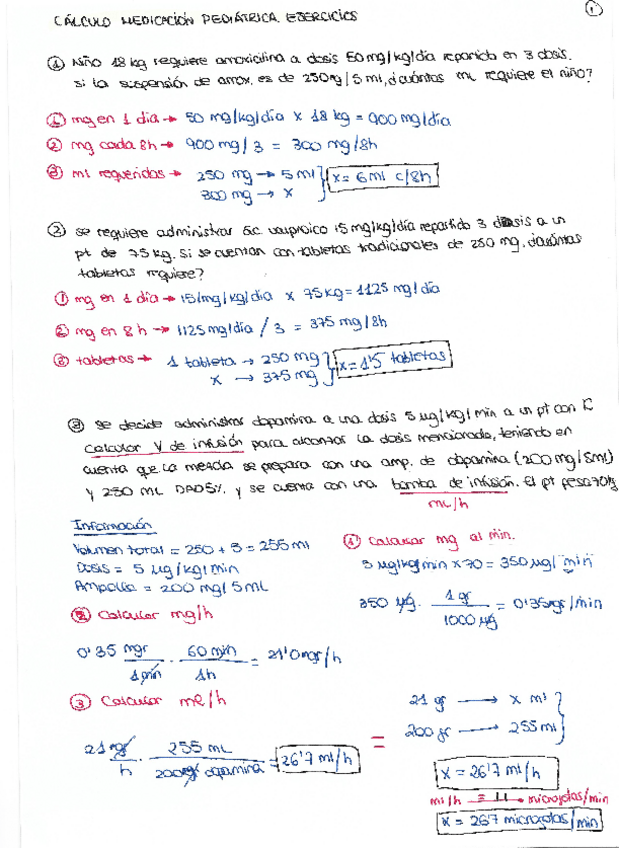 CÁLCULO MEDICACIÓN PEDIÁTRICA. EJERCICIOS
1
① Niño 18 kg requiere amoxicilina a dosis 50 mg/kg/día repartido en 3 dosis.
si la suspensión de amox. es de 250mg/5 ml, ¿cuántos mL requiere el niño?
① mg en 1 día → 50 mg/kg/día x 18 kg = 900 mg/día
② mg cada 8h → 900 mg/3 = 300 mg/8h
③ ml requeridos → 250 mg → 5 ml
300 mg → x
x = 6 ml c/8h
② se requiere administrar ác. valproico 15 mg/kg/día repartido 3 dosis a un
pt de 75 kg. Si se cuentan con tabletas tradicionales de 250 mg. ¿cuántas
tabletas requiere?
① mg en 1 día → 15/mg/kg/día x 75kg = 1125 mg/día
② mg en 8 h → 1125 mg/día / 3 = 375 mg/8h
③ tabletas → 1 tableta → 250 mg
x → 375 mg
x = 1'5 tabletas
③ se decide administrar dopamina a una dosis 5 μg/kg/min a un pt con IC
Calcular V de infusión para alcanzar la dosis mencionada, teniendo en
cuenta que la mezcla se prepara con una amp. de dopamina (200mg/5ml)
y 250 mL DAD5%. y se cuenta con una bomba de infusión. El pt pesa 70kg
mL/h
Información
Volumen total = 250 + 5 = 255 ml
Dosis = 5 μg/kg/min
Ampolla = 200 mg/5mL
① Calcular mg al min.
5 μg/kg/min x 70 = 350 μg/min
350 μg. 1 gr / 1000 μg = 0'35mgr/min
② Calcular mg/h
0'35 mgr / 1 min . 60 min / 1h = 21'0mgr/h
③ Calcular ml/h
21 gr / h . 255 mL / 200gr dopamina = 26'7 ml/h
=
21 gr → x ml
200 gr → 255 ml
x = 26'7 ml/h
ml/h = microgotas/min
x = 26'7 microgotas/min